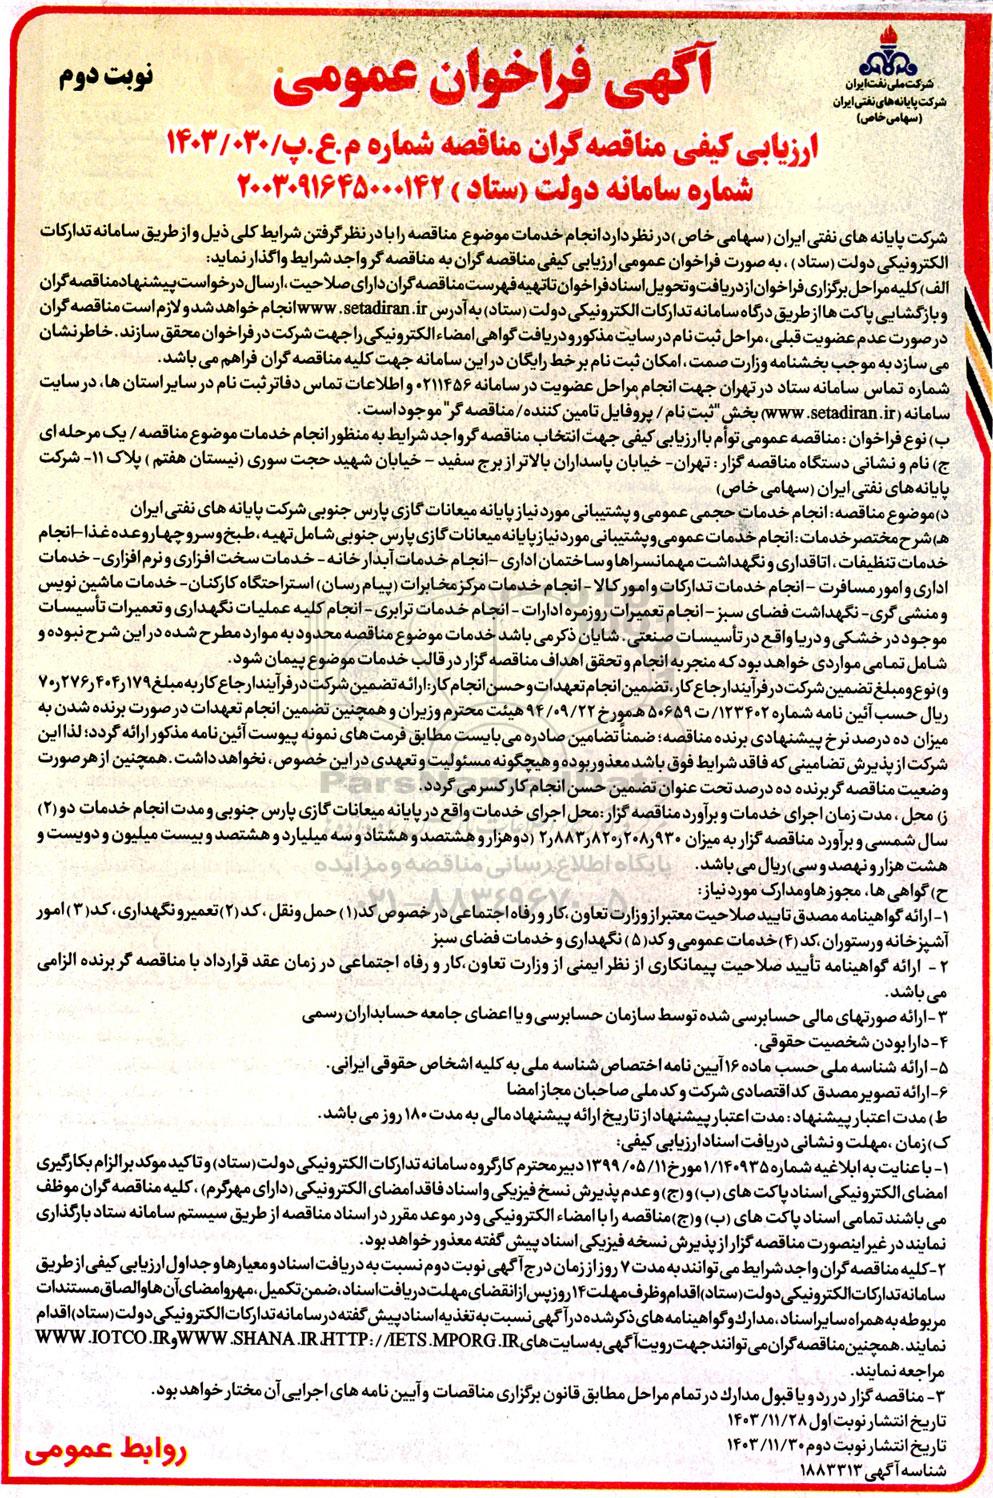 شرکت ملی نفت ایران
شرکت پایانه های نفتی ایران
(سهامی خاص)
آگهی فراخوان عمومی
نوبت دوم
ارزیابی کیفی مناقصه گران مناقصه شماره م.ع.پ/۱۴۰۳/۰۳۰
شماره سامانه دولت (ستاد) ۲۰۰۳۰۹۱۶۴۵۰۰۰۱۴۲
شرکت پایانه های نفتی ایران (سهامی خاص) در نظر دارد انجام خدمات موضوع مناقصه را با در نظر گرفتن شرایط کلی ذیل و از طریق سامانه تدارکات
الکترونیکی دولت (ستاد) ، به صورت فراخوان عمومی ارزیابی کیفی مناقصه گران به مناقصه گر واجد شرایط واگذار نماید:
الف) کلیه مراحل برگزاری فراخوان از دریافت و تحویل اسناد فراخوان تا تهیه فهرست مناقصه گران دارای صلاحیت ، ارسال درخواست پیشنهاد مناقصه گران
و بازگشایی پاکت ها از طریق درگاه سامانه تدارکات الکترونیکی دولت (ستاد) به آدرس www.setadiran.ir انجام خواهد شد و لازم است مناقصه گران
در صورت عدم عضویت قبلی ، مراحل ثبت نام در سایت مذکور و دریافت گواهی امضاء الکترونیکی را جهت شرکت در فراخوان محقق سازند . خاطر نشان
می سازد به موجب بخشنامه وزارت صمت ، امکان ثبت نام بر خط رایگان در این سامانه جهت کلیه مناقصه گران فراهم می باشد.
شماره تماس سامانه ستاد در تهران جهت انجام مراحل عضویت در سامانه ۰۲۱۱۴۵۶ و اطلاعات تماس دفاتر ثبت نام در سایر استان ها، در سایت
سامانه (www.setadiran.ir) بخش "ثبت نام / پروفایل تامین کننده/ مناقصه گر" موجود است.
ب) نوع فراخوان : مناقصه عمومی توأم با ارزیابی کیفی جهت انتخاب مناقصه گر واجد شرایط به منظور انجام خدمات موضوع مناقصه / یک مرحله ای
ج) نام و نشانی دستگاه مناقصه گزار : تهران- خیابان پاسداران بالاتر از برج سفید - خیابان شهید حجت سوری (نیستان هفتم) پلاک ۱۱- شرکت
پایانه های نفتی ایران (سهامی خاص)
د)موضوع مناقصه: انجام خدمات حجمی عمومی و پشتیبانی مورد نیاز پایانه میعانات گازی پارس جنوبی شرکت پایانه های نفتی ایران
هـ)شرح مختصر خدمات : انجام خدمات عمومی و پشتیبانی مورد نیاز پایانه میعانات گازی پارس جنوبی شامل تهیه ، طبخ و سرو چهار وعده غذا-انجام
خدمات تنظیفات ، اتاقداری و نگهداشت مهمانسراها و ساختمان اداری -انجام خدمات آبدار خانه - خدمات سخت افزاری و نرم افزاری- خدمات
اداری و امور مسافرت -انجام خدمات تدارکات و امور کالا - انجام خدمات مرکز مخابرات (پیام رسان) استراحتگاه کارکنان- خدمات ماشین نویس
و منشی گری- نگهداشت فضای سبز - انجام تعمیرات روزمره ادارات - انجام خدمات ترابری- انجام کلیه عملیات نگهداری و تعمیرات تأسیسات
موجود در خشکی و دریا واقع در تأسیسات صنعتی. شایان ذکر می باشد خدمات موضوع مناقصه محدود به موارد مطرح شده در این شرح نبوده و
شامل تمامی مواردی خواهد بود که منجر به انجام و تحقق اهداف مناقصه گزار در قالب خدمات موضوع پیمان شود.
و)نوع و مبلغ تضمین شرکت در فرآیند ارجاع کار، تضمین انجام تعهدات و حسن انجام کار: ارائه تضمین شرکت در فرآیند ارجاع کار به مبلغ ۷۰٫۲۷۶٫۴۰۴٫۱۷۹
ریال حسب آئین نامه شماره ۱۲۳۴۰۲/ت ۵۰۶۵۹ هـ مورخ ۹۴/۰۹/۲۲ هیئت محترم وزیران و همچنین تضمین انجام تعهدات در صورت برنده شدن به
میزان ده درصد نرخ پیشنهادی برنده مناقصه؛ ضمناً تضامین صادره می بایست مطابق فرمت های نمونه پیوست آئین نامه مذکور ارائه گردد؛ لذا این
شرکت از پذیرش تضامینی که فاقد شرایط فوق باشد معذور بوده و هیچگونه مسئولیت و تعهدی در این خصوص ، نخواهد داشت . همچنین از هر صورت
وضعیت مناقصه گر برنده ده درصد تحت عنوان تضمین حسن انجام کار کسر می گردد.
ز) محل ، مدت زمان اجرای خدمات و برآورد مناقصه گزار :محل اجرای خدمات واقع در پایانه میعانات گازی پارس جنوبی و مدت انجام خدمات دو (۲)
سال شمسی و برآورد مناقصه گزار به میزان ۲٫۸۸۳٫۸۲۰٫۲۰۸٫۹۳۰ (دوهزار و هشتصد و هشتاد و سه میلیارد و هشتصد و بیست میلیون و دویست و
هشت هزار و نهصد و سی) ریال می باشد.
ح) گواهی ها ، مجوز ها و مدارک مورد نیاز :
۱- ارائه گواهینامه مصدق تایید صلاحیت معتبر از وزارت تعاون ،کار و رفاه اجتماعی در خصوص کد(۱) حمل و نقل ، کد(۲) تعمیر و نگهداری ، کد(۳) امور
آشپزخانه و رستوران ،کد(۴) خدمات عمومی و کد(۵) نگهداری و خدمات فضای سبز
۲- ارائه گواهینامه تأیید صلاحیت پیمانکاری از نظر ایمنی از وزارت تعاون ،کار و رفاه اجتماعی در زمان عقد قرارداد با مناقصه گر برنده الزامی
می باشد.
۳-ارائه صورتهای مالی حسابرسی شده توسط سازمان حسابرسی و یا اعضای جامعه حسابداران رسمی
۴-دارا بودن شخصیت حقوقی.
۵- ارائه شناسه ملی حسب ماده ۱۶ آیین نامه اختصاص شناسه ملی به کلیه اشخاص حقوقی ایرانی.
۶-ارائه تصویر مصدق کد اقتصادی شرکت و کد ملی صاحبان مجاز امضا
ط) مدت اعتبار پیشنهاد : مدت اعتبار پیشنهاد از تاریخ ارائه پیشنهاد مالی به مدت ۱۸۰ روز می باشد.
ک)زمان ،مهلت و نشانی دریافت اسناد ارزیابی کیفی:
۱- با عنایت به ابلاغیه شماره ۱/۱۴۰۹۳۵ مورخ ۱۳۹۹/۰۵/۱۱ دبیر محترم کارگروه سامانه تدارکات الکترونیکی دولت (ستاد) و تاکید موکد بر الزام بکارگیری
امضای الکترونیکی اسناد پاکت های (ب) و (ج) و عدم پذیرش نسخ فیزیکی و اسناد فاقد امضای الکترونیکی (دارای مهر گرم) ، کلیه مناقصه گران موظف
می باشند تمامی اسناد پاکت های (ب) و(ج)مناقصه را با امضاء الکترونیکی ودر موعد مقرر در اسناد مناقصه از طریق سیستم سامانه ستاد بارگذاری
نمایند در غیر اینصورت مناقصه گزار از پذیرش نسخه فیزیکی اسناد پیش گفته معذور خواهد بود.
۲-کلیه مناقصه گران واجد شرایط می توانند به مدت ۷ روز از زمان درج آگهی نوبت دوم نسبت به دریافت اسناد و معیارها و جداول ارزیابی کیفی از طریق
سامانه تدارکات الکترونیکی دولت (ستاد) اقدام و ظرف مهلت ۱۴ روز پس از انقضای مهلت دریافت اسناد ، ضمن تکمیل ، مهر و امضای آن ها و الصاق مستندات
مربوطه به همراه سایر اسناد ، مدارک و گواهینامه های ذکر شده در آگهی نسبت به تغذیه اسناد پیش گفته در سامانه تدارکات الکترونیکی دولت (ستاد) اقدام
نمایند . همچنین مناقصه گران می توانند جهت رویت آگهی به سایت های WWW.SHANA.IR،HTTP://IETS.MPORG.IR و WWW.IOTCO.IR
مراجعه نمایند.
۳- مناقصه گزار در رد و یا قبول مدارک در تمام مراحل مطابق قانون برگزاری مناقصات و آیین نامه های اجرایی آن مختار خواهد بود.
تاریخ انتشار نوبت اول ۱۴۰۳/۱۱/۲۸
تاریخ انتشار نوبت دوم ۱۴۰۳/۱۱/۳۰
شناسه آگهی ۱۸۸۳۳۱۳
روابط عمومی
ParsNamadData
پایگاه اطلاع رسانی مناقصه و مزایده
۰۲۱-۸۸۳۴۹۶۷۰-۵